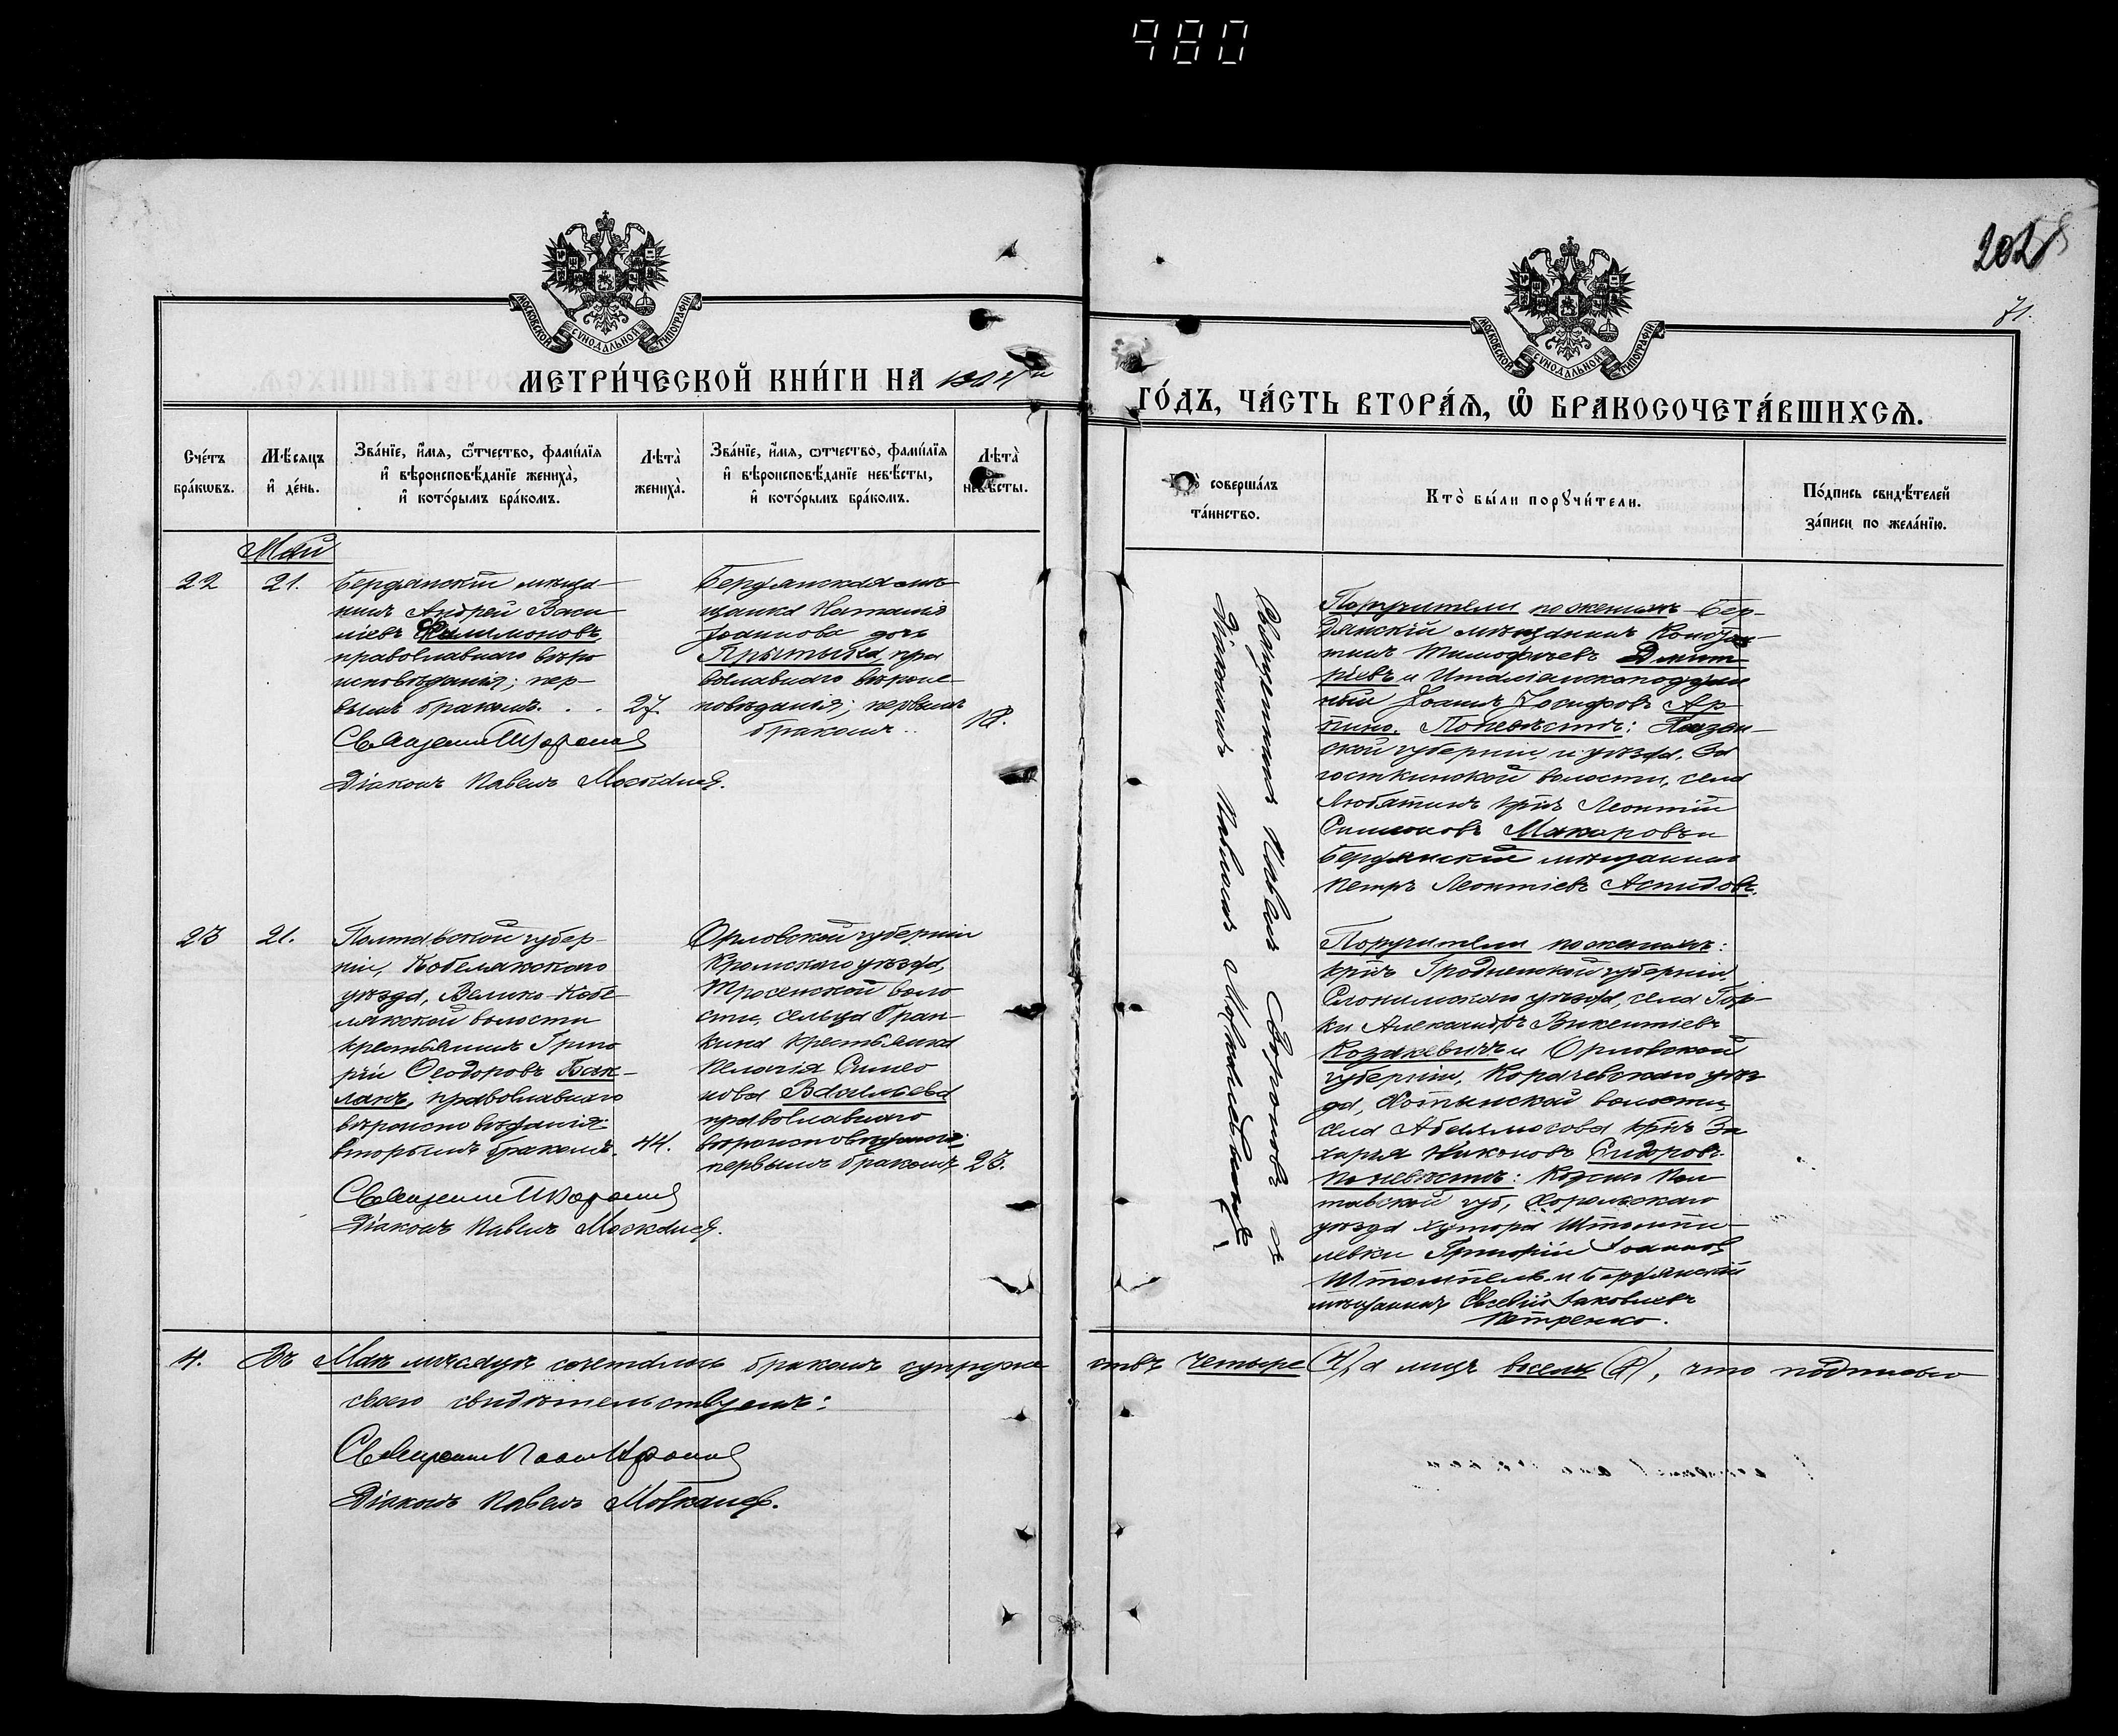 980
202
71.
МОСКОВСКОЙ СѴНОДАЛЬНОЙ ТИПОГРАФІИ
МОСКОВСКОЙ СѴНОДАЛЬНОЙ ТИПОГРАФІИ
МЕТРИ́ЧЕСКОЙ КНИ́ГИ НА
ГО́ДЪ, ЧА́СТЬ ВТОРА́Ѧ, Ѿ БРАКОСОЧЕТА́ВШИХСѦ.
Сче́тъ
бра́кѡвъ.
Мѣ́сѧцъ
и҆ де́нь.
Зва́нїе, и҆́мѧ, ѻ҆́тчество, фамѵ́лїѧ
и҆ вѣроисповѣ́данїе жениха̀,
и҆ кото́рымъ бра́комъ.
Лѣта̀
жениха̀.
Зва́нїе, и҆́мѧ, ѻ҆́тчество, фамѵ́лїѧ
и҆ вѣроисповѣ́данїе невѣ́сты,
и҆ кото́рымъ бра́комъ.
Лѣта̀
невѣ́сты.
соверша́лъ
та́инство.
Кто̀ бы́ли порꙋчи́тели.
По́дпись свидѣ́телей
за́писи по жела́нїю.
Май
22
21.
Бердянскій мѣща-
нинъ Андрей Васи-
ліевъ
православнаго вѣро
исповѣданія; пер-
вымъ бракомъ. . .
27.
Священникъ П Воронов
Діаконъ Павелъ
Бердянская мѣ-
щанка Наталія
Іоаннова дочь
пра
вославнаго вѣроис-
повѣданія; первымъ
бракомъ ..
18.
Священникъ Павелъ Вороновъ съ
Діакономъ Павломъ
Поручители по женихѣ Бер-
дянскій мѣщанинъ Констан-
тинъ Тимофѣевъ Дмит-
ріевъ и Италіанскоподдан
ный Іоаннъ Іосифовъ Ар-
По невѣстѣ: Казан-
ской губерніи, и уѣзда, За
волости, села
крнъ Леонтій
Симеоновъ Макаровъ и
Бердянскій мѣщанинъ
Петръ Леонтіевъ Аспидовъ.
23
21.
Полтавской губер-
ніи, Кобелякскаго
уѣзда, Велико-Кобе-
лякской волости
крестьянинъ Григо
рій Ѳеодоровъ Бак-
ланъ, православнаго
вѣроисповѣданія.
вторымъ бракомъ.
44.
Священникъ П Воронов
Діаконъ Павелъ
Орловской губерніи
Кромскаго уѣзда,
Тросенской воло
сти, сельца Гран-
кина крестьянка
Пелагія Симео
нова
православнаго
вѣроисповѣданія.
первымъ бракомъ
23.
Поручители по женихѣ:
крнъ Гродненской губерніи
Слонимскаго уѣзда, села Гор-
ки Александръ Викентіевъ
Козакевичъ и Орловской
губерніи, Карачевскаго уѣз
да, Хотынской волости,
села крнъ За
харія Никоновъ Сидоровъ.
По невѣстѣ: Козакъ Пол
тавской губ, Хорольскаго
уѣзда хутора Штомпе-
левки Григорій Іоанновъ
Штомпель и Бердянскій
мѣщанинъ Евсевій Іаковлевъ
Петренко.
4. Въ Маѣ мѣсяцѣ сочеталось бракомъ супруже
ствъ четыре (4) а лицъ восемь (8), что подписью
своею свидѣтельствуемъ:
Священникъ Павелъ Воронов
Діаконъ Павелъ